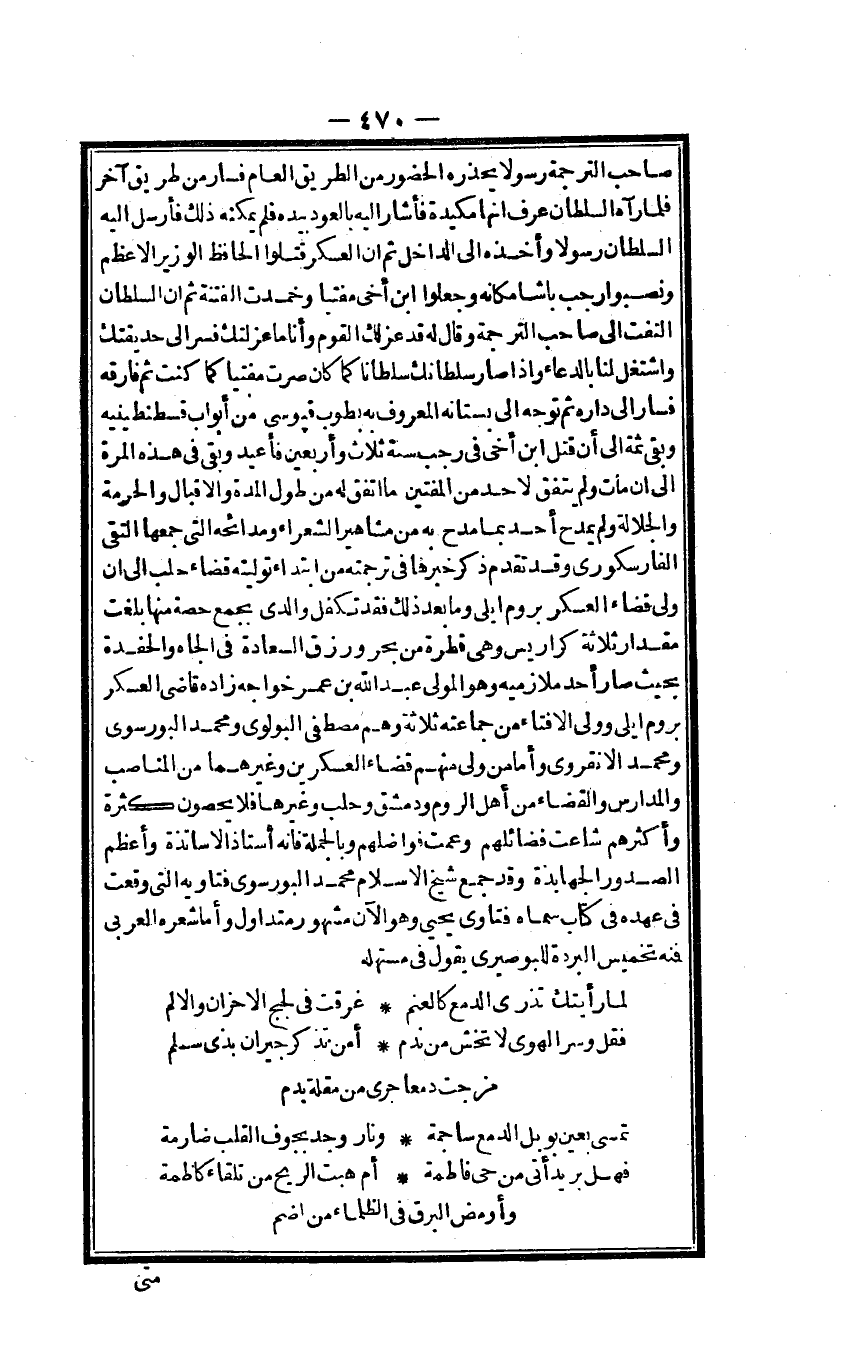 — ٤٧٠ —
صاحب الترجمة رسولا يحذره الحضور من الطريق العام فسار من طريق آخر
فلما رآه السلطان عرف انها مكيدة فأشار اليه بالعود بيده فلم يمكنه ذلك فأرسل اليه
السلطان رسولا وأخذه الى الداخل ثم ان العسكر قتلوا الحافظ الوزير الاعظم
ونصبوا رجب باشا مكانه وجعلوا ابن أخى مفتيا وخمدت الفتنة ثم ان السلطان
التفت الى صاحب الترجمة وقال له قد عزلك القوم وأنا ما عزلتك فسر الى حديقتك
واشتغل لنا بالدعاء واذا صار سلطانك سلطانا كما كان صرت مفتيا كما كنت ثم فارقه
فسار الى داره ثم توجه الى بستانه المعروف به بطوب قپوسى من أبواب قسطنطينيه
وبقى ثمة الى أن قتل ابن أخى فى رجب سنة ثلاث وأربعين فأعيد وبقى فى هذه المرة
الى ان مات ولم يتفق لاحد من المفتين ما اتفق له من طول المدة والاقبال والحرمة
والجلالة ولم يمدح أحد بما مدح به من مشاهير الشعراء ومدائحه التى جمعها التقى
الفارسكورى وقد تقدم ذكر خبرها فى ترجمته من ابتداء توليته قضاء حلب الى ان
ولى قضاء العسكر بروم ايلى وما بعد ذلك فقد تكفل والدى بجمع حصة منها بلغت
مقدار ثلاثة كراريس وهى قطرة من بحر ورزق السعادة فى الجاه والحفدة
بحيث صار أحد ملازميه وهو المولى عبد الله بن عمر خواجه زاده قاضى العسكر
بروم ايلى وولى الافتاء من جماعته ثلاثة وهم مصطفى البولوى ومحمد البورسوى
ومحمد الانقروى وأما من ولى منهم قضاء العسكرين وغيرهما من المناصب
والمدارس والقضاء من أهل الروم ودمشق وحلب وغيرها فلا يحصون كثرة
وأكثرهم شاعت فضائلهم وعمت فواضلهم وبالجملة فانه أستاذ الاساتذة وأعظم
الصدور الجهابذة وقد جمع شيخ الاسلام محمد البورسوى فتاويه التى وقعت
فى عهده فى كتاب سماه فتاوى يحيى وهو الآن مشهور متداول وأما شعره العربى
فنه تخميس البردة للبوصيرى يقول فى مستهله
لما رأيتك تذرى الدمع كالعنم * غرقت فى لجج الاحزان والالم
فقل وسر الهوى لا تخش من ندم * أمن تذكر جيران بذى سلم
مزجت دمعا جرى من مقلة بدم
تمسى بعين بوبل الدمع ساجمة * ونار وجد بجوف القلب ضارمة
فهل بريد أتى من حى فاطمة * أم هبت الريح من تلقاء كاظمة
وأومض البرق فى الظلماء من اضم
متى